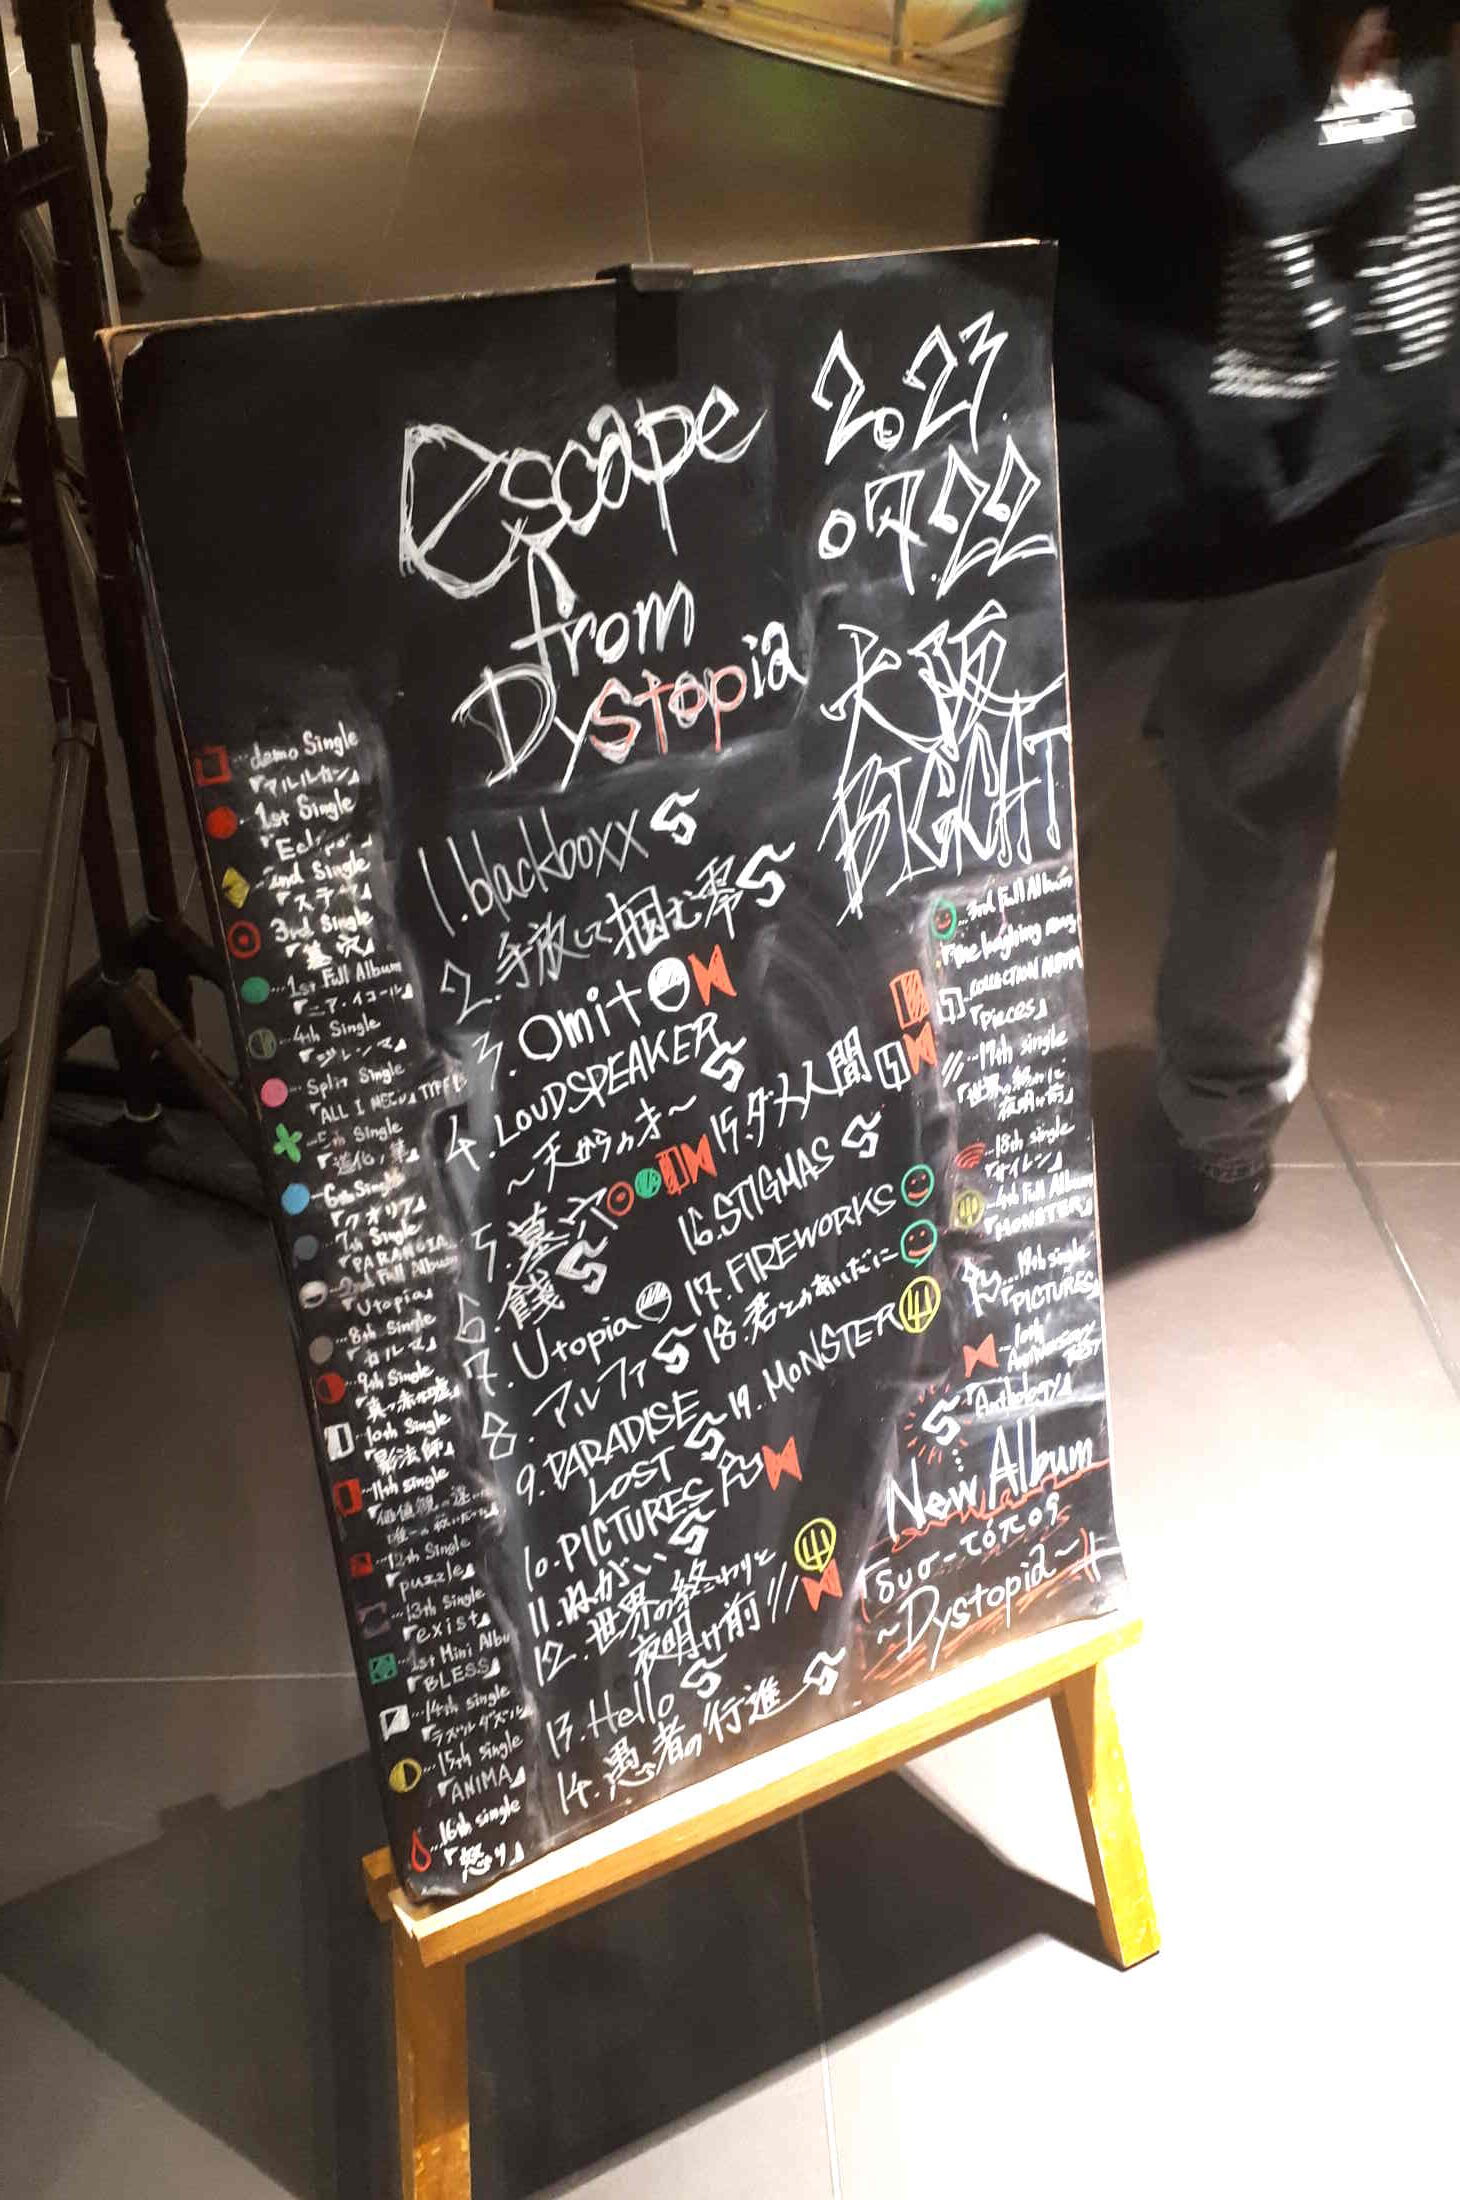 escape
from
Dystopia
2023.
07.22
大阪
BIGCAT
1.blackboxx
2.手放して掴む零
3.omit
4.LOUDSPEAKER
～天からの才～
5.墓穴
6.餞
7.Utopia
8.アルファ
9.PARADISE
LOST
10.PICTURES
11.ねがい
12.世界の終わりと
夜明け前
13.Hello
14.愚者の行進
15.ダメ人間
16.STIGMAS
17.FIREWORKS
18.君とのあいだに
19.MONSTER
…demo Single
『アルルカン』
…1st Single
…2nd Single
『ステラ』
3rd Single
『墓穴』
…1st Full Album
『ニア・イコール』
…4th Single
『ジレンマ』
Split Single
…5th Single
…6th Single
『クオリア』
…7th Single
『PARANOIA』
…2nd Full Album
『Utopia』
…8th Single
『カルマ』
…9th Single
『真っ赤な嘘』
…10th Single
『影法師』
…11th single
…12th Single
『puzzle』
…13th Single
『exist』
…1st Mini Albu
『BLESS』
…14th single
『ラズルダズル』
…15th Single
『ANIMA』
…16th single
『怒り』
…3rd Full Album
『The laughing man』
…COLLECTION ALBUM
『Pieces』
…17th single
『世界の終わりと
夜明け前』
…18th single
『サイレン』
…4th Full Album
『MONSTER』
…19th single
『PICTURES』
…10th
Anniversary
BEST
『Anthology』
…New Album
『δυσ-τόπος
～Dystopia～』